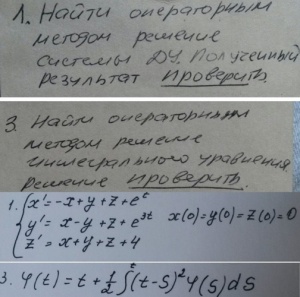 1. Найти операторным
методом решение
системы ДУ. Полученный
результат проверить.
3. Найти операторным
методом решение
интегрального уравнения
Решение проверить.
1. { x' = -x + y + z + e^t
y' = x - y + z + e^{3t} x(0) = y(0) = z(0) = 0
z' = x + y + z + 4
3. φ(t) = t + 1/2 ∫^t (t - s)^2 φ(s) ds